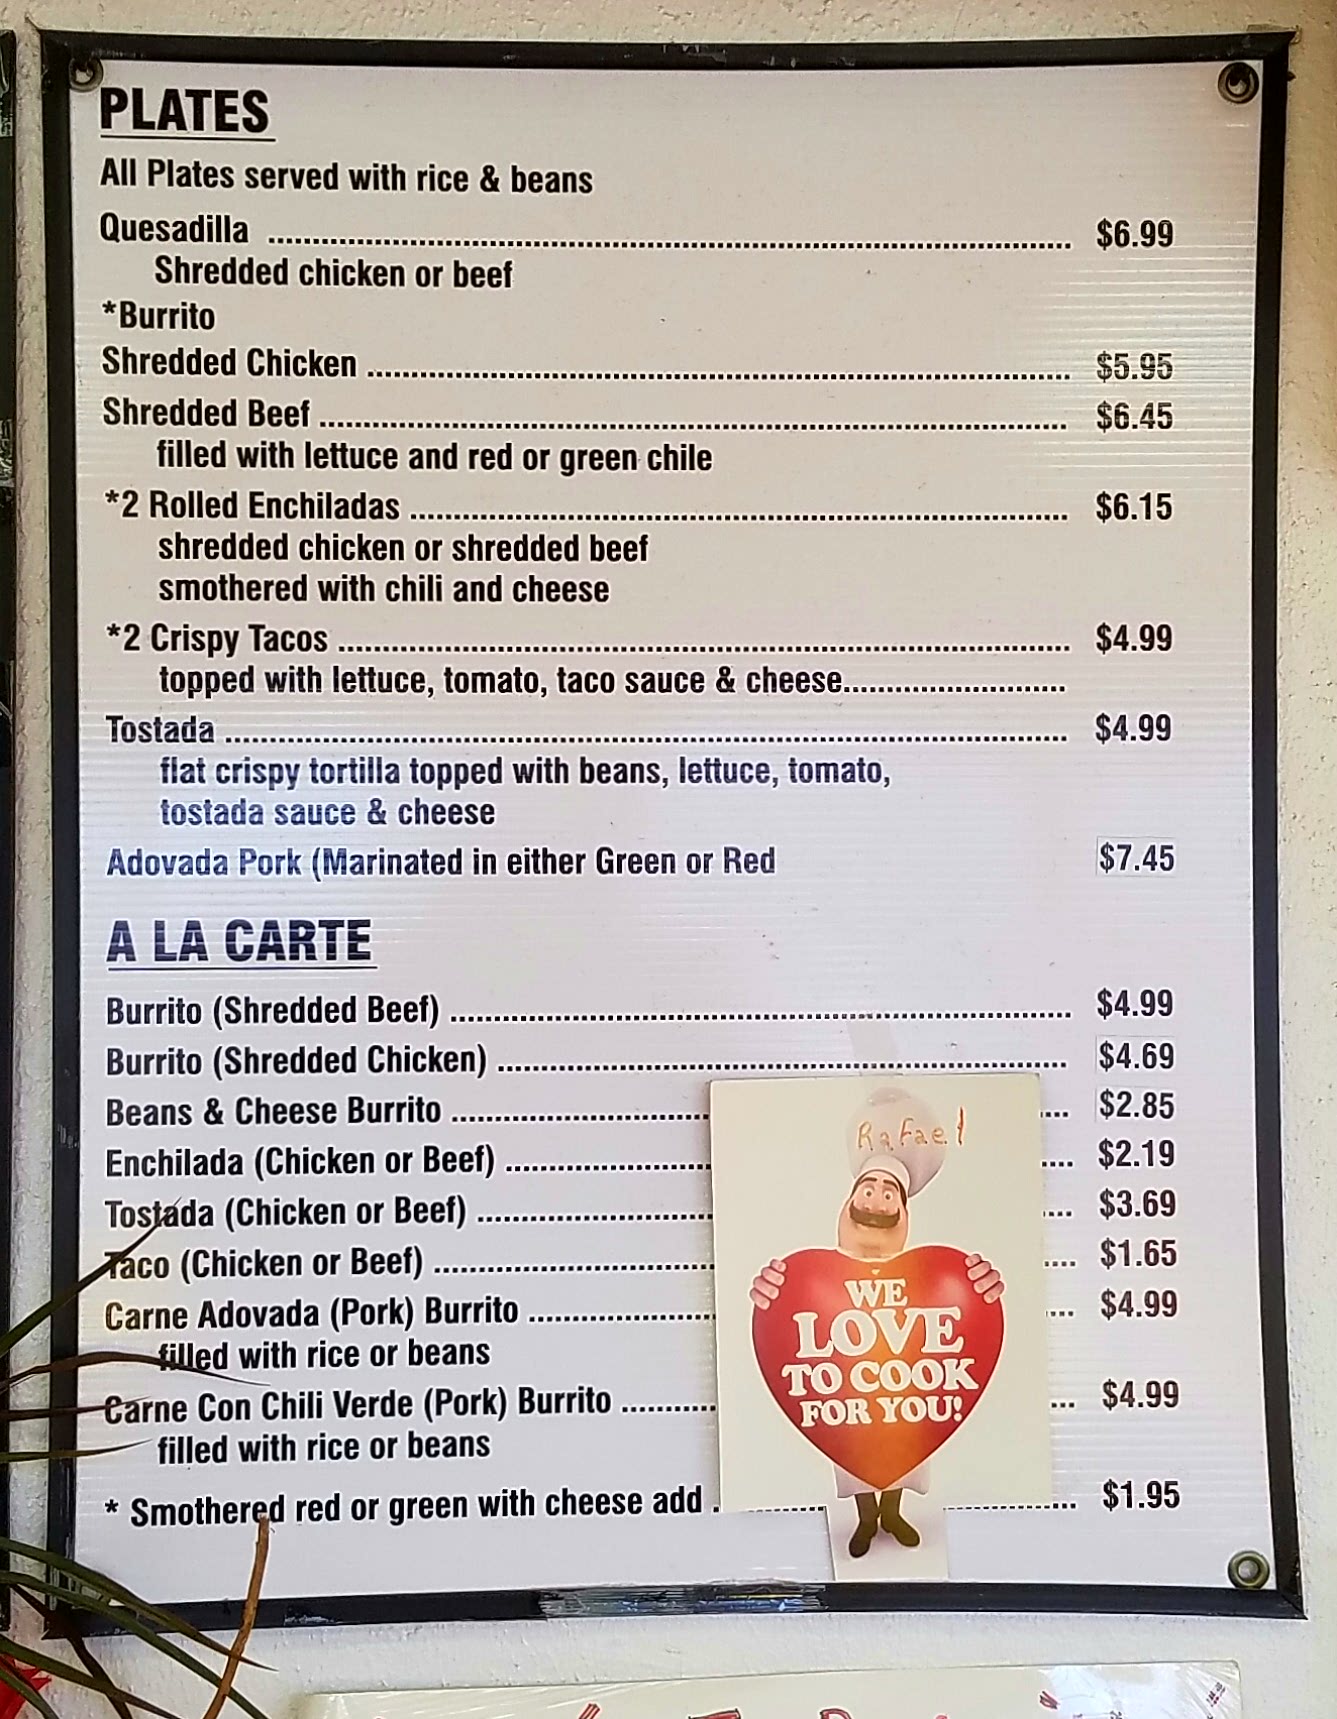 PLATES
All Plates served with rice & beans
Quesadilla ........ $6.99
Shredded chicken or beef
*Burrito
Shredded Chicken ........ $5.95
Shredded Beef ........ $6.45
filled with lettuce and red or green chile
*2 Rolled Enchiladas ........ $6.15
shredded chicken or shredded beef
smothered with chili and cheese
*2 Crispy Tacos ........ $4.99
topped with lettuce, tomato, taco sauce & cheese........
Tostada ........ $4.99
flat crispy tortilla topped with beans, lettuce, tomato,
tostada sauce & cheese
Adovada Pork (Marinated in either Green or Red $7.45
A LA CARTE
Burrito (Shredded Beef) ........ $4.99
Burrito (Shredded Chicken) ........ $4.69
Beans & Cheese Burrito ........ $2.85
Enchilada (Chicken or Beef) ........ $2.19
Tostada (Chicken or Beef) ........ $3.69
Taco (Chicken or Beef) ........ $1.65
Carne Adovada (Pork) Burrito ........ $4.99
filled with rice or beans
Carne Con Chili Verde (Pork) Burrito ........ $4.99
filled with rice or beans
* Smothered red or green with cheese add ........ $1.95
Rafael
WE
LOVE
TO COOK
FOR YOU!